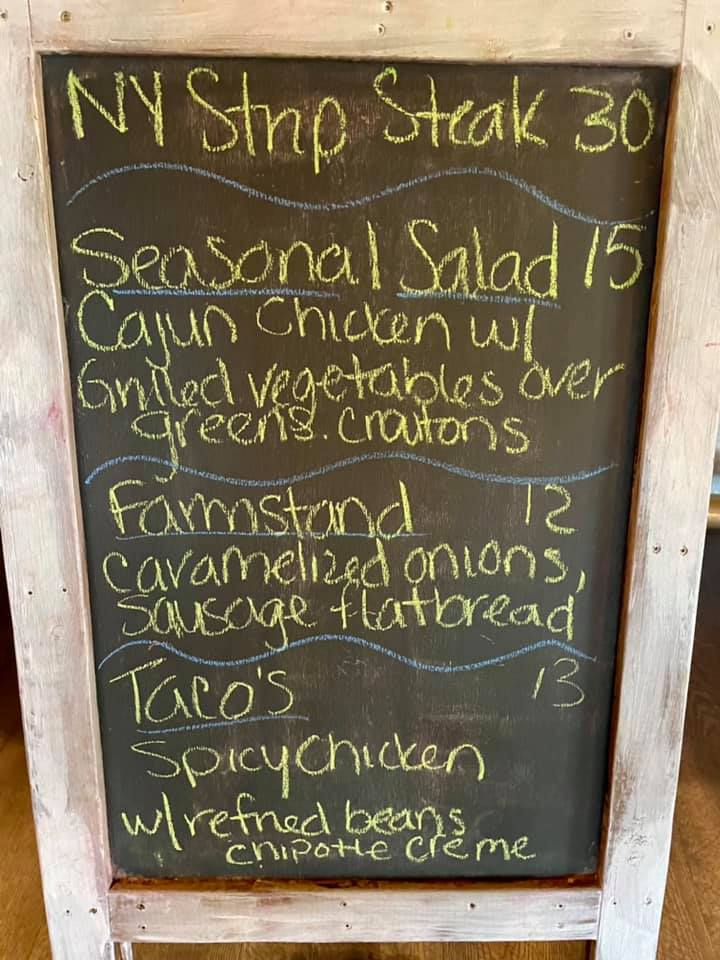 NY Strip Steak 30
Seasonal Salad 15
Cajun Chicken w/
Grilled vegetables over
greens. croutons
Farmstand 12
caramelized onions,
sausage flatbread
Taco's 13
Spicy Chicken
w/ refried beans
chipotle creme